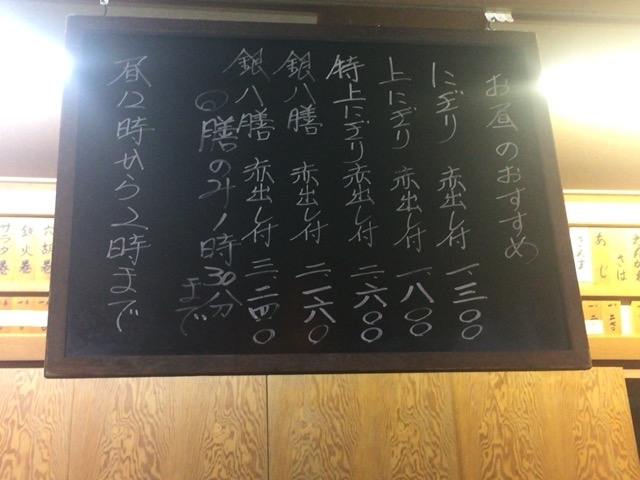 お昼のおすすめ
にぎり 赤出し付 一、三〇〇
上にぎり 赤出し付 一、八〇〇
特上にぎり 赤出し付 二、六〇〇
銀八膳 赤出し付 二、一六〇
銀八膳 赤出し付 三、二四〇
膳のみ1時30分まで
昼12時から2時まで
さば
あじ
鉄火巻
サラダ巻